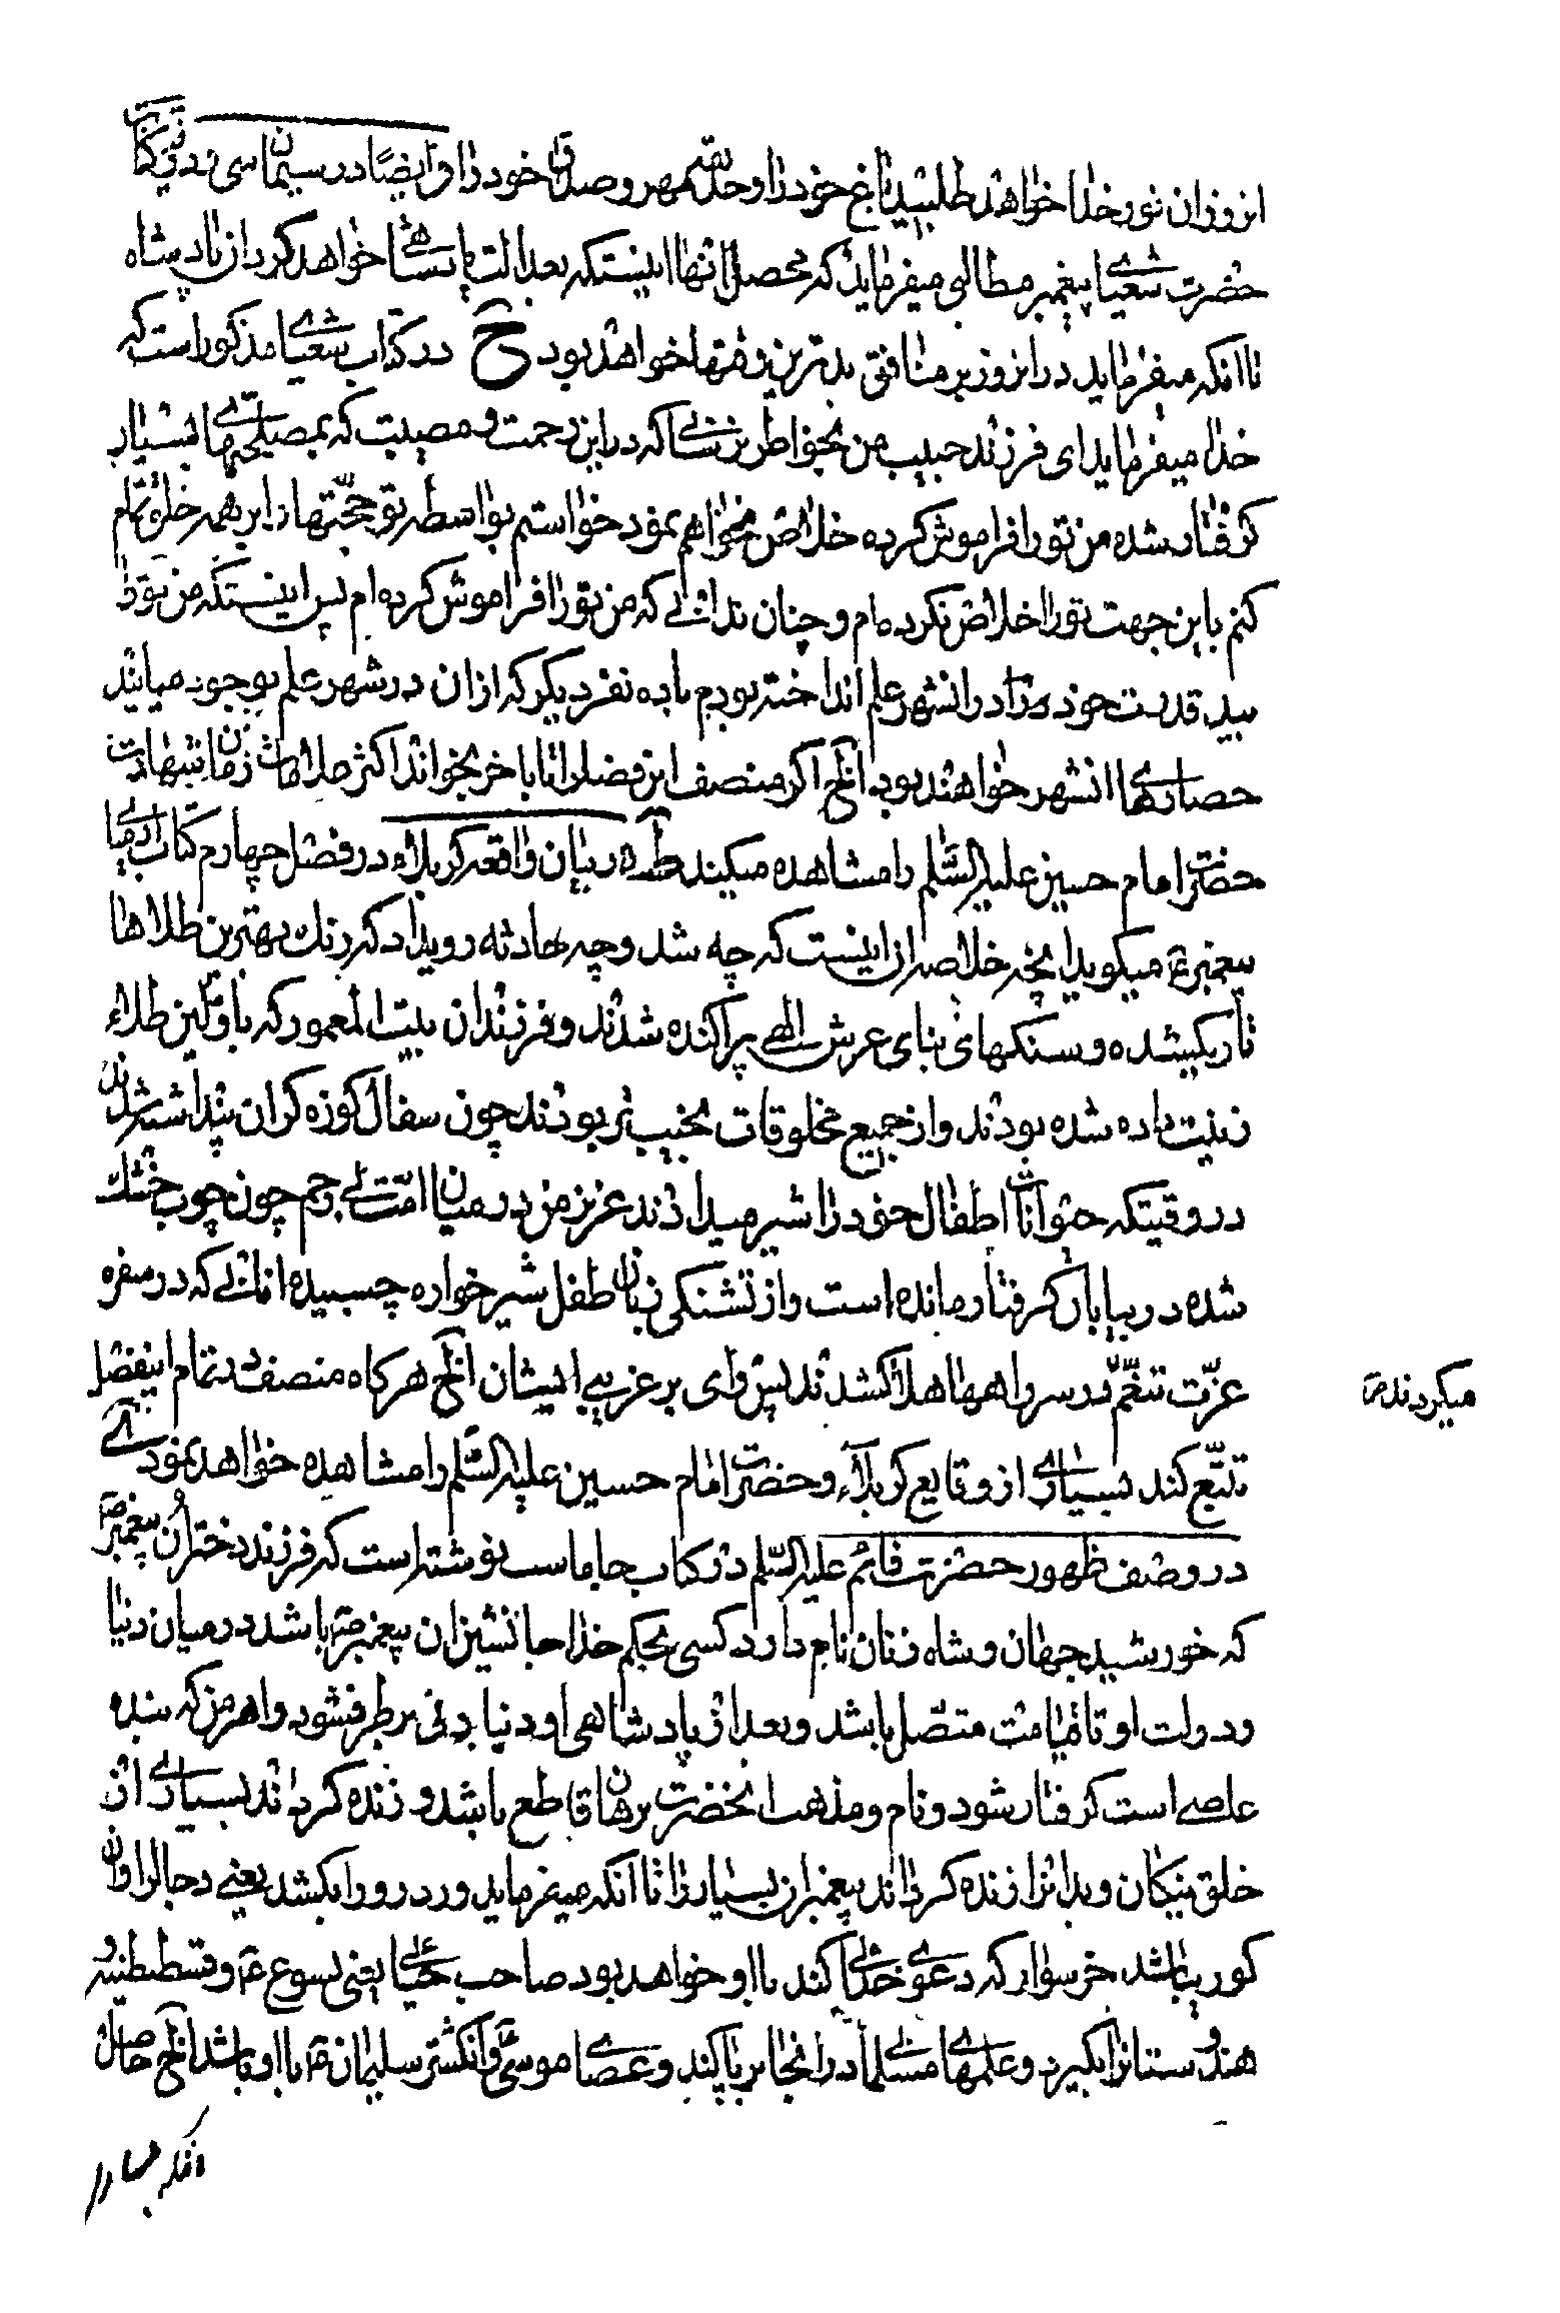 انروز ان نور خدا خواهد طلبید باغ خود را و حلقه مهر و صدق خود را و ایضا در سیمان سی و دویم کتاب
حضرت شعیای پیغمبر مطالبی میفرماید که محصل انها اینستکه بعدالت پادشاهی خواهد کرد ان پادشاه
تا انکه میفرماید در انروز بر منافق بدترین وقتها خواهد بود ح در کتاب شعیای مذکور است که
خدا میفرماید ای فرزند حبیب من بخواطر نرسانی که در این زحمت و مصیبت که بمصلحتهای بسیار
گرفتار شده من تو را فراموش کرده خلاص نخواهم نمود خواستم بواسطه تو حجتها را بر همه خلق تمام
کنم باین جهت تو را خلاص نکرده ام و چنان ندانی که من تو را فراموش کرده ام پس اینستکه من تو را
بید قدرت خود در انشهر علم انداخته بودم با ده نفر دیگر که از ان در شهر علم بوجود میایند
حصارهای انشهر خواهند بود الخ اگر منصف این فضل را تا باخر بخواند اکثر علامات زمان شهادت
حضرت امام حسین علیه السلم را مشاهده میکند ط در بیان واقعه کربلاء در فصل چهارم کتاب ارمیای
پیغمبر ع میگوید انچه خلاصه ان اینست که چه شد و چه حادثه رویداد که رنک بهترین طلاها
تاریکشده و سنکهای بنای عرش الهی پراکنده شدند و فرزندان بیت المعمور که باولین طلاء
زینت داده شده بودند و از جمیع مخلوقات نجیب تر بودند چون سفال کوزه گران پنداشته شدند
در وقتیکه حیوانات اطفال خود را شیر میدادند عزیز من در میان امت بی رحم چون چوب خشک
شده در بیابان گرفتار مانده است و از تشنگی زبان طفل شیرخواره چسبیده انانی که در سفره
عزت تنعم در سر راهها هلاکشدند پس وای بر غریبی ایشان الخ هر گاه منصف در تمام اینفصل
میکردند صح
تتبع کند بسیاری از وقایع کربلاء و حضرت امام حسین علیه السلم را مشاهده خواهد نمود ی
در وصف ظهور حضرت قائم علیه السلم در کتاب جاماسب نوشته است که فرزند دختر ان پیغمبر ص
که خورشید جهان و شاه زنان نام دارد کسی بحکم خدا جانشین ان پیغمبر ص باشد در میان دنیا
و دولت او تا قیامت متصل باشد و بعد از پادشاهی او دنیا برطرف شود و اهرمن که بنده
عاصی است گرفتار شود و نام و مذهب انحضرت برهان قاطع باشد و زنده گرداند بسیاری از
خلق نیکان و بدانرا زنده گرداند پیغمبران بسیار را تا انکه میفرماید و ردرو را بکشد یعنی دجال را و ان
کور باشد خر سوار که دعوی خدائی کند با او خواهد بود صاحب حیات یعنی یسوع ع و قسطنطنیه و
هندوستانرا بگیرد و علمهای مسلمانی در انجا برپا کند و عصای موسی و انگشتر سلیمان ع با او باشد الخ حاصل